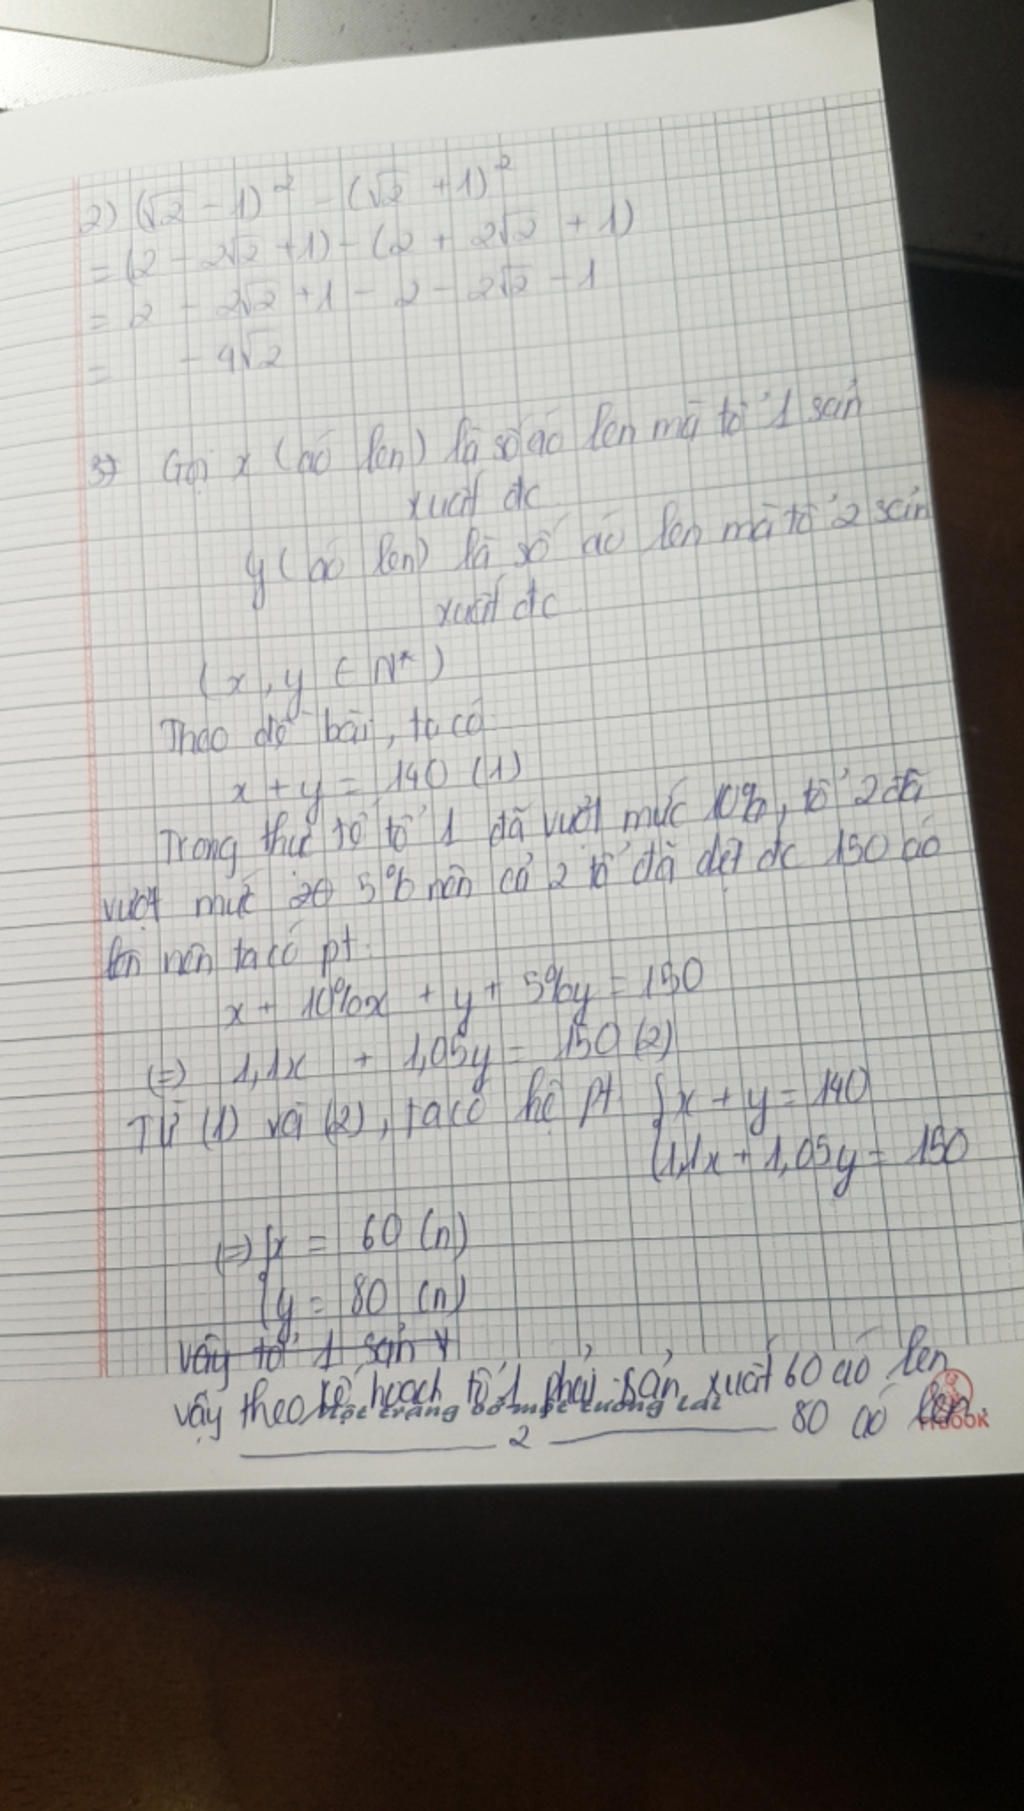 2) (√2 - 1)² - (√2 + 1)²
= (2 - 2√2 + 1) - (2 + 2√2 + 1)
= 2 - 2√2 + 1 - 2 - 2√2 - 1
= - 4√2
3) Gọi x (áo len) là số áo len mà tổ 1 sản
xuất đc
y (áo len) là số áo len mà tổ 2 sản
xuất đc
(x, y ∈ N*)
Theo đề bài, ta có
x + y = 140 (1)
Trong thực tế tổ 1 đã vượt mức 10%, tổ 2 đã
vượt mức 5% nên cả 2 tổ đã dệt đc 150 áo
len nên ta có pt:
x + 10%x + y + 5%y = 150
(=) 1,1x + 1,05y = 150 (2)
Từ (1) và (2), ta có hệ pt { x + y = 140
1,1x + 1,05y = 150
(=) { x = 60 (n)
y = 80 (n)
vậy tổ 1 sản
vậy theo kế hoạch tổ 1 phải sản xuất 60 áo len
2 80 áo len.